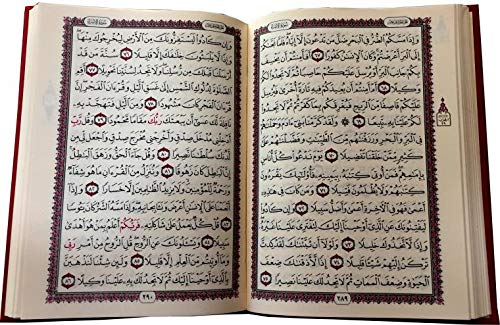 سُورَةُ الإِسْرَاءِ
وَإِذَا مَسَّكُمُ ٱلضُّرُّ فِي ٱلْبَحْرِ ضَلَّ مَن تَدْعُونَ إِلَّآ إِيَّاهُ فَلَمَّا نَجَّىٰكُمْ
إِلَى ٱلْبَرِّ أَعْرَضْتُمْ وَكَانَ ٱلْإِنسَٰنُ كَفُورًا ٦٧ أَفَأَمِنتُمْ أَن يَخْسِفَ
بِكُمْ جَانِبَ ٱلْبَرِّ أَوْ يُرْسِلَ عَلَيْكُمْ حَاصِبًا ثُمَّ لَا تَجِدُوا۟ لَكُمْ
وَكِيلًا ٦٨ أَمْ أَمِنتُمْ أَن يُعِيدَكُمْ فِيهِ تَارَةً أُخْرَىٰ فَيُرْسِلَ
عَلَيْكُمْ قَاصِفًا مِّنَ ٱلرِّيحِ فَيُغْرِقَكُم بِمَا كَفَرْتُمْ ثُمَّ لَا تَجِدُوا۟
لَكُمْ عَلَيْنَا بِهِۦ تَبِيعًا ٦٩ ۞ وَلَقَدْ كَرَّمْنَا بَنِيٓ ءَادَمَ وَحَمَلْنَٰهُمْ
فِي ٱلْبَرِّ وَٱلْبَحْرِ وَرَزَقْنَٰهُم مِّنَ ٱلطَّيِّبَٰتِ وَفَضَّلْنَٰهُمْ
عَلَىٰ كَثِيرٍ مِّمَّنْ خَلَقْنَا تَفْضِيلًا ٧٠ يَوْمَ نَدْعُوا۟ كُلَّ أُنَاسٍۭ
بِإِمَٰمِهِمْ فَمَنْ أُوتِيَ كِتَٰبَهُۥ بِيَمِينِهِۦ فَأُو۟لَٰٓئِكَ يَقْرَءُونَ
كِتَٰبَهُمْ وَلَا يُظْلَمُونَ فَتِيلًا ٧١ وَمَن كَانَ فِي هَٰذِهِۦٓ
أَعْمَىٰ فَهُوَ فِي ٱلْءَاخِرَةِ أَعْمَىٰ وَأَضَلُّ سَبِيلًا ٧٢ وَإِن كَادُوا۟
لَيَفْتِنُونَكَ عَنِ ٱلَّذِيٓ أَوْحَيْنَآ إِلَيْكَ لِتَفْتَرِيَ عَلَيْنَا غَيْرَهُۥ
وَإِذًا لَّٱتَّخَذُوكَ خَلِيلًا ٧٣ وَلَوْلَآ أَن ثَبَّتْنَٰكَ لَقَدْ كِدتَّ
تَرْكَنُ إِلَيْهِمْ شَيْـًٔا قَلِيلًا ٧٤ إِذًا لَّأَذَقْنَٰكَ ضِعْفَ
ٱلْحَيَوٰةِ وَضِعْفَ ٱلْمَمَاتِ ثُمَّ لَا تَجِدُ لَكَ عَلَيْنَا نَصِيرًا ٧٥
٢٨٩
سُورَةُ الإِسْرَاءِ
وَإِن كَادُوا۟ لَيَسْتَفِزُّونَكَ مِنَ ٱلْأَرْضِ لِيُخْرِجُوكَ مِنْهَا
وَإِذًا لَّا يَلْبَثُونَ خِلَٰفَكَ إِلَّا قَلِيلًا ٧٦ سُنَّةَ مَن قَدْ
أَرْسَلْنَا قَبْلَكَ مِن رُّسُلِنَا وَلَا تَجِدُ لِسُنَّتِنَا تَحْوِيلًا ٧٧
أَقِمِ ٱلصَّلَوٰةَ لِدُلُوكِ ٱلشَّمْسِ إِلَىٰ غَسَقِ ٱلَّيْلِ وَقُرْءَانَ ٱلْفَجْرِ إِنَّ
قُرْءَانَ ٱلْفَجْرِ كَانَ مَشْهُودًا ٧٨ وَمِنَ ٱلَّيْلِ فَتَهَجَّدْ بِهِۦ
نَافِلَةً لَّكَ عَسَىٰٓ أَن يَبْعَثَكَ رَبُّكَ مَقَامًا مَّحْمُودًا ٧٩ وَقُل رَّبِّ
أَدْخِلْنِي مُدْخَلَ صِدْقٍ وَأَخْرِجْنِي مُخْرَجَ صِدْقٍ وَٱجْعَل لِّي مِن
لَّدُنكَ سُلْطَٰنًا نَّصِيرًا ٨٠ وَقُلْ جَآءَ ٱلْحَقُّ وَزَهَقَ ٱلْبَٰطِلُ إِنَّ
ٱلْبَٰطِلَ كَانَ زَهُوقًا ٨١ وَنُنَزِّلُ مِنَ ٱلْقُرْءَانِ مَا هُوَ شِفَآءٌ
وَرَحْمَةٌ لِّلْمُؤْمِنِينَ وَلَا يَزِيدُ ٱلظَّٰلِمِينَ إِلَّا خَسَارًا ٨٢ وَإِذَآ
أَنْعَمْنَا عَلَى ٱلْإِنسَٰنِ أَعْرَضَ وَنَـَٔا بِجَانِبِهِۦ وَإِذَا مَسَّهُ ٱلشَّرُّ كَانَ يَـُٔوسًا
٨٣ قُلْ كُلٌّ يَعْمَلُ عَلَىٰ شَاكِلَتِهِۦ فَرَبُّكُمْ أَعْلَمُ بِمَنْ هُوَ أَهْدَىٰ
سَبِيلًا ٨٤ وَيَسْـَٔلُونَكَ عَنِ ٱلرُّوحِ قُلِ ٱلرُّوحُ مِنْ أَمْرِ رَبِّي
وَمَآ أُوتِيتُم مِّنَ ٱلْعِلْمِ إِلَّا قَلِيلًا ٨٥ وَلَئِن شِئْنَا لَنَذْهَبَنَّ
بِٱلَّذِيٓ أَوْحَيْنَآ إِلَيْكَ ثُمَّ لَا تَجِدُ لَكَ بِهِۦ عَلَيْنَا وَكِيلًا ٨٦
٢٩٠